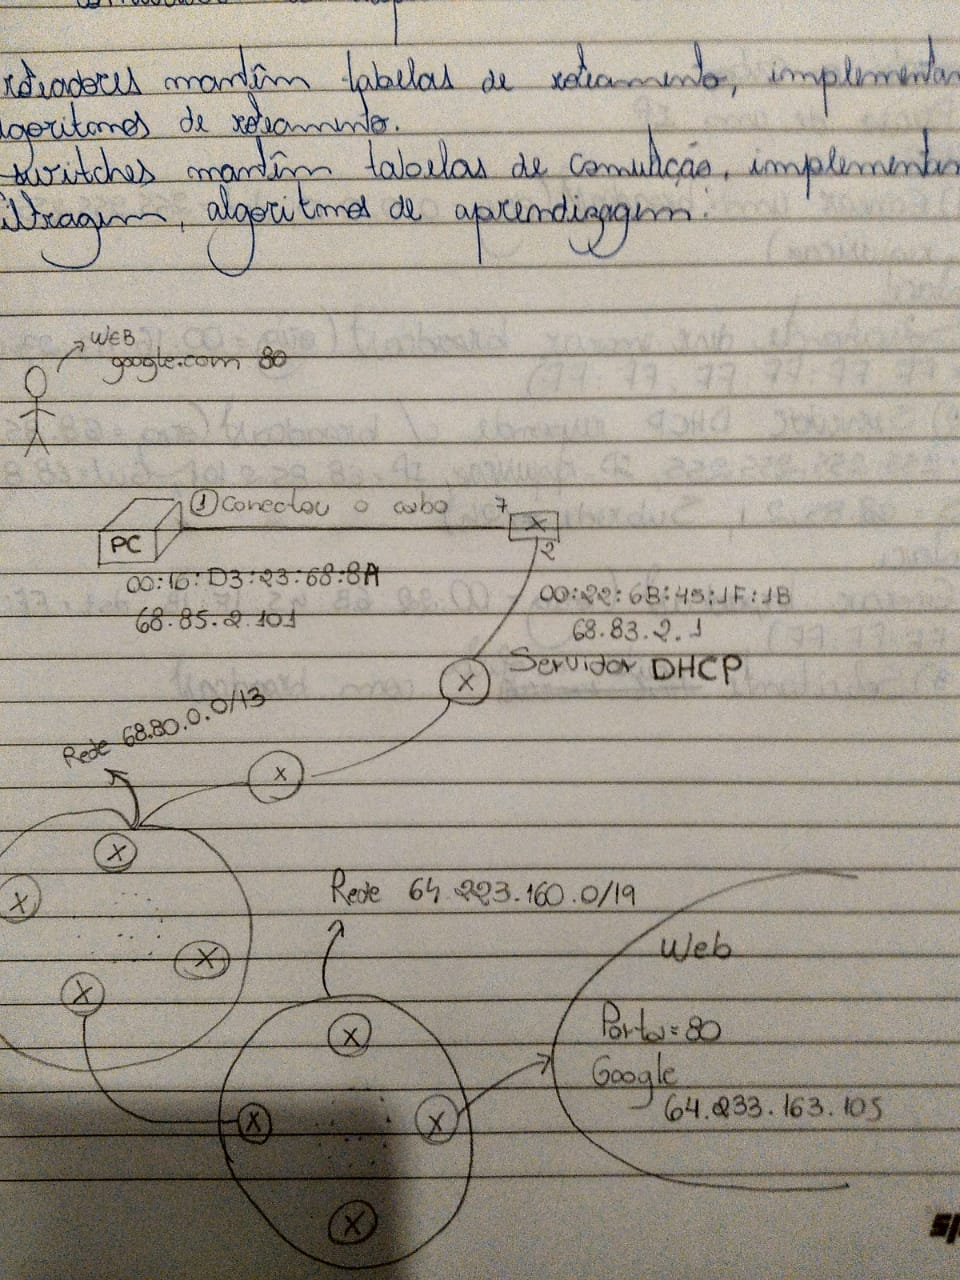 roteadores mantêm tabelas de roteamento, implementam
lgoritmos de roteamento.
switches mantêm tabelas de comutação, implementam
iltragem, algoritmos de aprendizagem.
WEB
google.com 80
① Conectou o cabo
7
X
PC
2
00:16:D3:23:68:8A
00:22:6B:45:1F:1B
68.85.2.101
68.83.2.1
X
Servidor DHCP
Rede 68.80.0.0/13
X
X
X
Rede 64.223.160.0/19
Web
X
X
X
Porta=80
Google
64.233.163.105
X
X
X